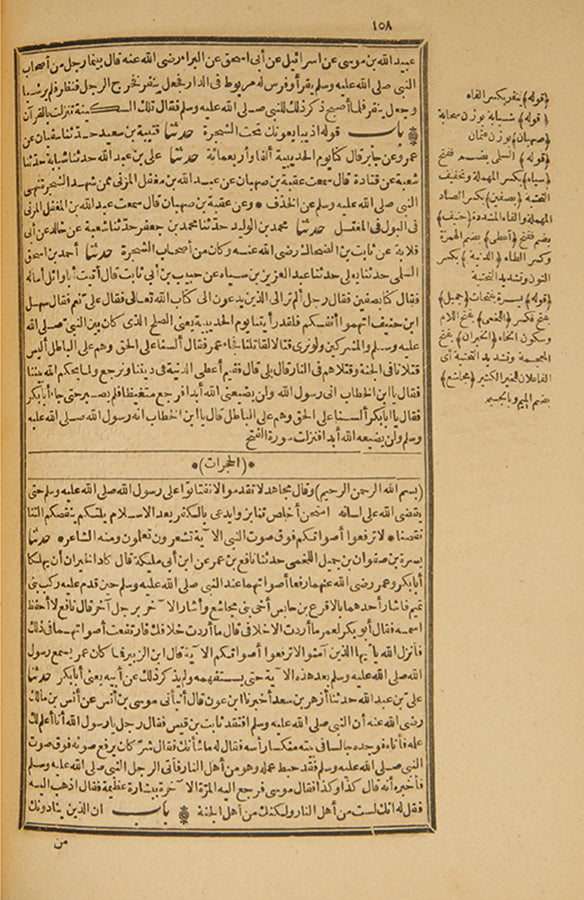 ١٥٨
عبيد الله بن موسى عن اسرائيل عن أبى اسحق عن البراء رضى الله عنه قال بينما رجل من أصحاب
النبى صلى الله عليه وسلم يقرأ وفرس له مربوط فى الدار فجعل ينفر فخرج الرجل فنظر فلم ير شيأ
وجعل ينفر فلما أصبح ذكر ذلك للنبى صلى الله عليه وسلم فقال تلك السكينة تنزلت بالقرآن
باب قوله اذ يبايعونك تحت الشجرة حدثنا قتيبة بن سعيد حدثنا سفيان عن
عمرو عن جابر قال كنا يوم الحديبية ألفا وأربعمائة حدثنا على بن عبد الله حدثنا شبابة حدثنا
شعبة عن قتادة قال سمعت عقبة بن صهبان عن عبد الله بن مغفل المزنى ممن شهد الشجرة نهى
النبى صلى الله عليه وسلم عن الخذف * وعن عقبة بن صهبان قال سمعت عبد الله بن المغفل المزنى
فى البول فى المغتسل حدثنا محمد بن الوليد حدثنا محمد بن جعفر حدثنا شعبة عن خالد عن أبى
قلابة عن ثابت بن الضحاك رضى الله عنه وكان من أصحاب الشجرة حدثنا أحمد بن اسحق
السلمى حدثنا يعلى حدثنا عبد العزيز بن سياه عن حبيب بن أبى ثابت قال أتيت أبا وائل أسأله
فقال كنا بصفين فقال رجل ألم تر الى الذين يدعون الى كتاب الله تعالى فقال على نعم فقال سهل
ابن حنيف اتهموا أنفسكم فلقد رأيتنا يوم الحديبية يعنى الصلح الذى كان بين النبى صلى الله
عليه وسلم والمشركين ولو نرى قتالا لقاتلنا فجاء عمر فقال ألسنا على الحق وهم على الباطل أليس
قتلانا فى الجنة وقتلاهم فى النار قال بلى قال ففيم أعطى الدنية فى ديننا ونرجع ولما يحكم الله بيننا
فقال يا ابن الخطاب انى رسول الله ولن يضيعنى الله أبدا فرجع متغيظا فلم يصبر حتى جاء أبا بكر
فقال يا أبا بكر ألسنا على الحق وهم على الباطل قال يا ابن الخطاب انه رسول الله صلى الله عليه
وسلم ولن يضيعه الله أبدا فنزلت سورة الفتح
*(الحجرات)*
(بسم الله الرحمن الرحيم) وقال مجاهد لا تقدموا لا تفتاتوا على رسول الله صلى الله عليه وسلم حتى
يقضى الله على لسانه امتحن أخلص تنابزوا يدعى بالكفر بعد الاسلام يلتكم ينقصكم ألتنا
نقصنا * لا ترفعوا أصواتكم فوق صوت النبى الآية تشعرون تعلمون ومنه الشاعر * حدثنا
يسرة بن صفوان بن جميل اللخمى حدثنا نافع بن عمر عن ابن أبى مليكة قال كاد الخيران أن يهلكا
أبا بكر وعمر رضى الله عنهما رفعا أصواتهما عند النبى صلى الله عليه وسلم حين قدم عليه ركب بنى
تميم فأشار أحدهما بالاقرع بن حابس أخى بنى مجاشع وأشار الآخر برجل آخر قال نافع لا أحفظ
اسمه فقال أبو بكر لعمر ما أردت الا خلافى قال ما أردت خلافك فارتفعت أصواتهما فى ذلك
فأنزل الله يا أيها الذين آمنوا لا ترفعوا أصواتكم الآية قال ابن الزبير فما كان عمر يسمع رسول
الله صلى الله عليه وسلم بعد هذه الآية حتى يستفهمه ولم يذكر ذلك عن أبيه يعنى أبا بكر حدثنا
على بن عبد الله حدثنا أزهر بن سعد أخبرنا ابن عون قال أنبأنى موسى بن أنس عن أنس بن مالك
رضى الله عنه أن النبى صلى الله عليه وسلم افتقد ثابت بن قيس فقال رجل يا رسول الله أنا أعلم لك
علمه فأتاه فوجده جالسا فى بيته منكسا رأسه فقال له ما شأنك فقال شر كان يرفع صوته فوق صوت
النبى صلى الله عليه وسلم فقد حبط عمله وهو من أهل النار فأتى الرجل النبى صلى الله عليه وسلم
فأخبره أنه قال كذا وكذا فقال موسى فرجع اليه المرة الآخرة ببشارة عظيمة فقال اذهب اليه
فقل له انك لست من أهل النار ولكنك من أهل الجنة باب ان الذين ينادونك
من
(قوله) ينفر بكسر الفاء
(قوله) شبابة بوزن سحابة
(صهبان) بوزن عثمان
(قوله) السلمى بضم ففتح
(سياه) بكسر المهملة وتخفيف
التحتية (بصفين) بكسر الصاد
المهملة والفاء المشددة (حنيف)
بضم ففتح (أعطى) بضم الهمزة
وكسر الطاء (الدنية) بكسر
النون وتشديد التحتية
(قوله) يسرة بفتحات (جميل)
بفتح فكسر (اللخمى) بفتح اللام
وسكون الخاء (الخيران) بفتح
المعجمة وتشديد التحتية أى
الفاعلان للخير الكثير (مجاشع)
بضم الميم وبالجيم